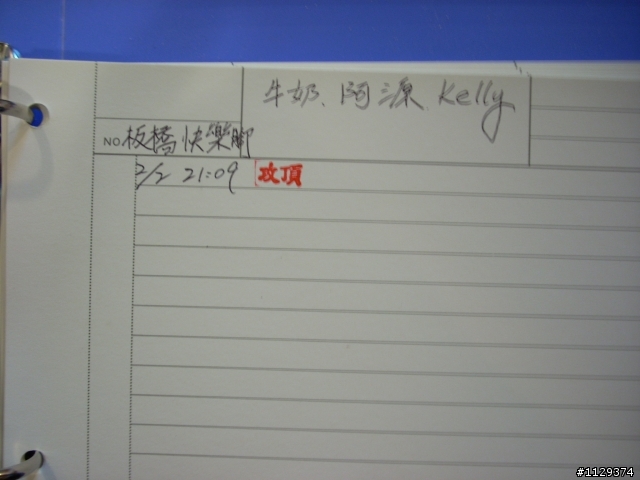 牛奶、阿源 Kelly
NO.板橋快樂腳
2/2 21:09 攻頂
#1129374